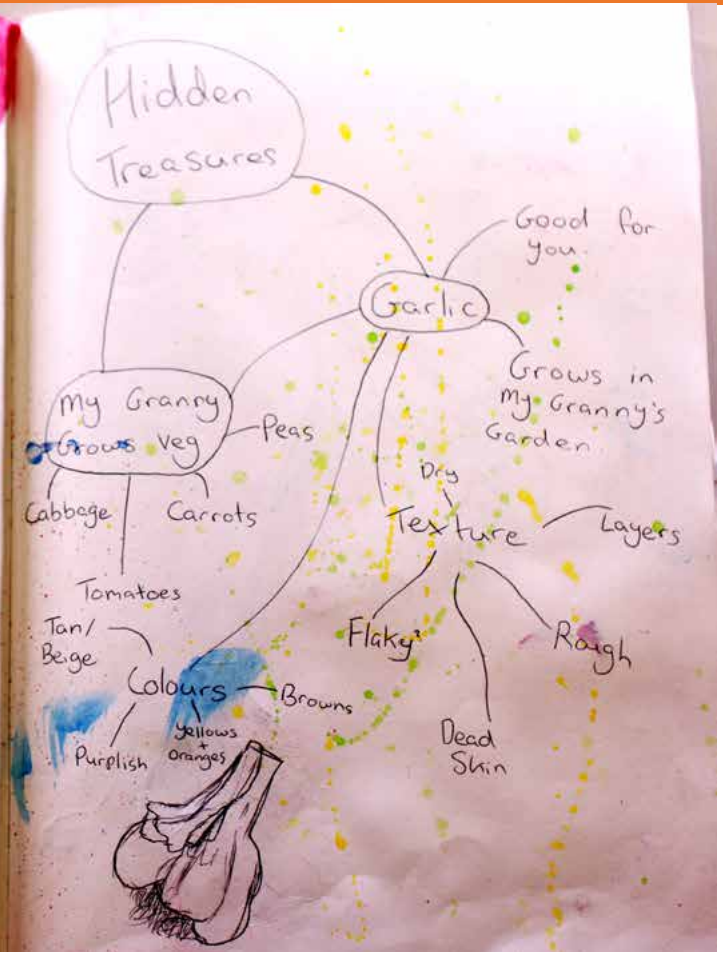 Hidden
Treasures
Good for
you.
Garlic
Grows in
My Granny's
Garden
My Granny
Grows veg
Peas
Cabbage
Carrots
Tomatoes
Dry
Texture
Layers
Flaky
Rough
Dead
Skin
Tan/
Beige
Colours
Browns
Purplish
yellows
+
oranges